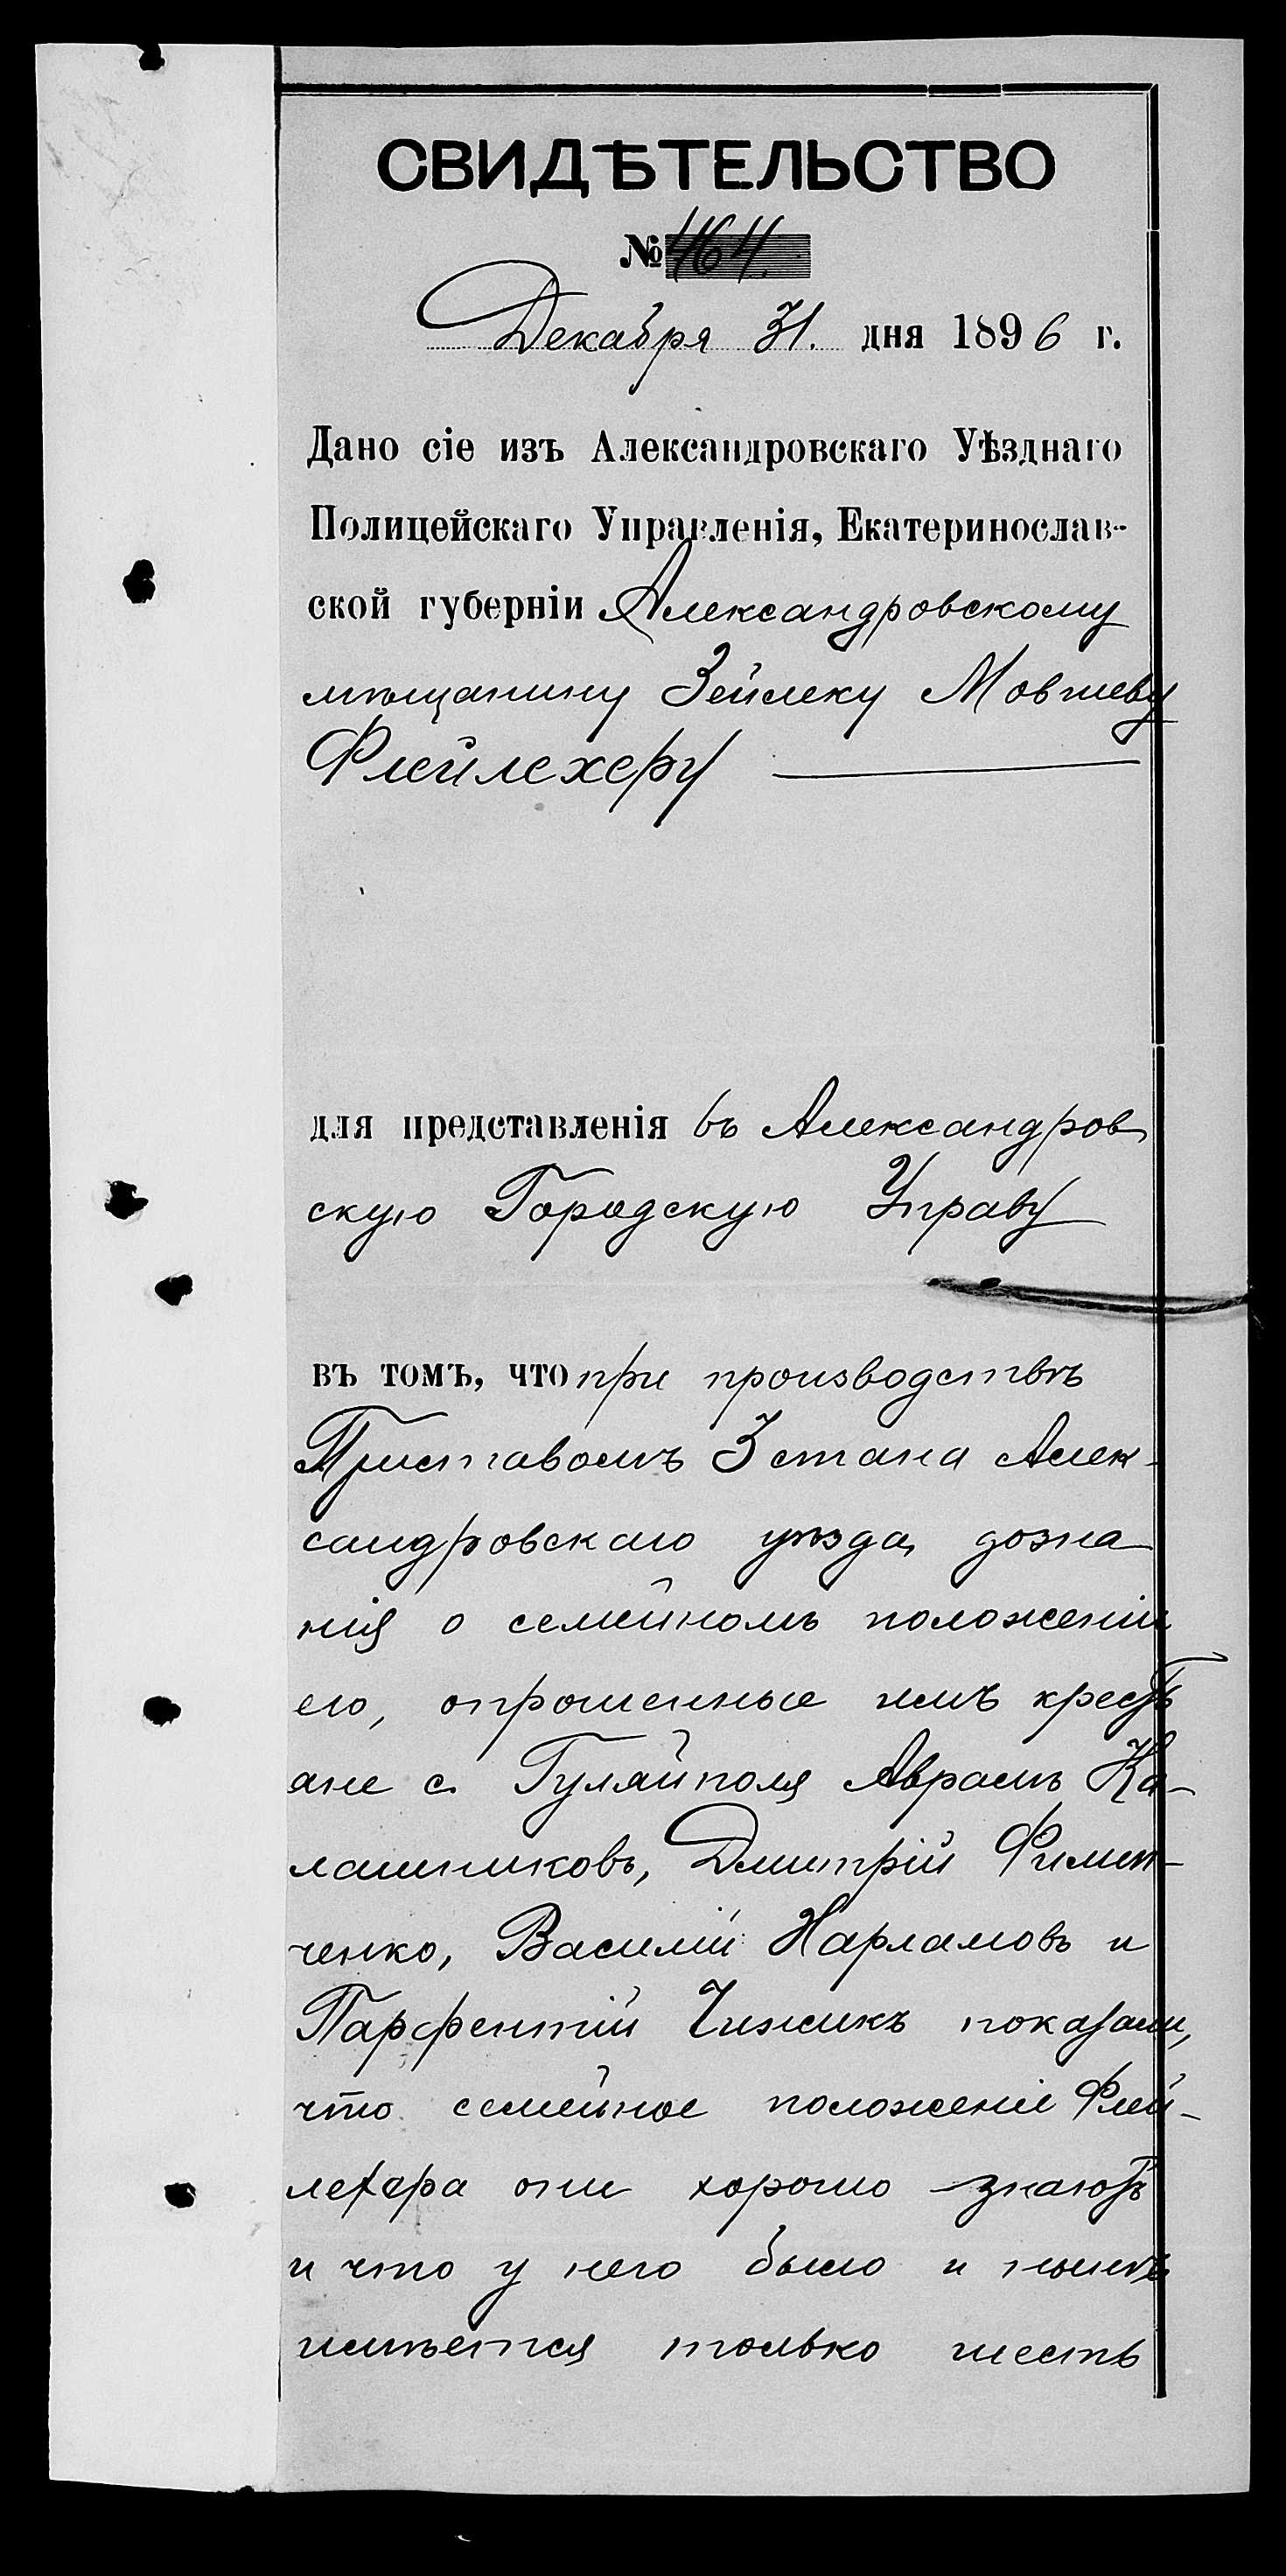 СВИДѢТЕЛЬСТВО
№ 464.
Декабря 31. дня 1896 г.
Дано сіе изъ Александровскаго Уѣзднаго
Полицейскаго Управленія, Екатеринослав-
ской губерніи Александровскому
мѣщанину Зейлеку Мовшеву
Флейлехеру
для представленія въ Александров
скую Городскую Управу
въ томъ, что при производствѣ
Приставомъ 3 стана Алек-
сандровскаго уѣзда дозна
нія о семейномъ положеніи
его, опрошенные имъ кресть
яне с. Гуляйполя Аврамъ Ка-
лашниковъ, Дмитрій Филип-
ченко, Василій Харламовъ и
Парфентій Чижикъ показали,
что семейное положеніе Флей-
лехера они хорошо знаютъ
и что у него было и нынѣ
имѣется только шесть